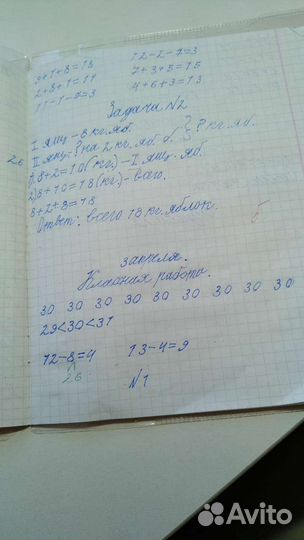 9+1+8=18 12-2-7=3
2+8+1=11 7+3+5=15
11-1-7=3 4+6+3=13
Задача N2
I ящ. - 8 кг. яб.
II ящ. - ? на 2 кг. яб. б. ? кг. яб.
1) 8+2=10(кг.) - II ящ. яб.
2) 8+10=18(кг) - всего.
8+2+8=18
Ответ: всего 18 кг. яблок.
Классная работа.
30 30 30 30 30 30 30 30 30
29<30<31
12-8=4 13-4=9
26
N1
Avito